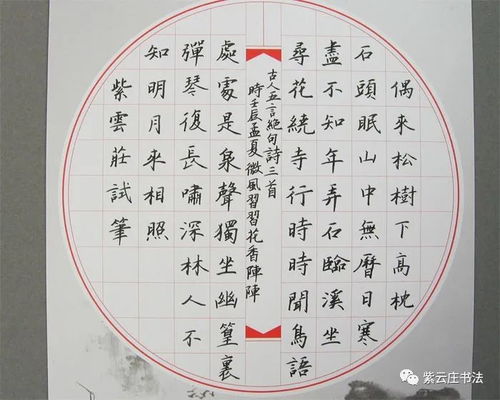 偶來松樹下高枕
石頭眠山中無曆日寒
盡不知年弄石臨溪坐
尋花繞寺行時時聞鳥語
古人五言絕句詩三首
時壬辰孟夏微風習習花香陣陣
處處是泉聲獨坐幽篁裏
彈琴復長嘯深林人不
知明月來相照
紫雲莊試筆
紫云庄书法